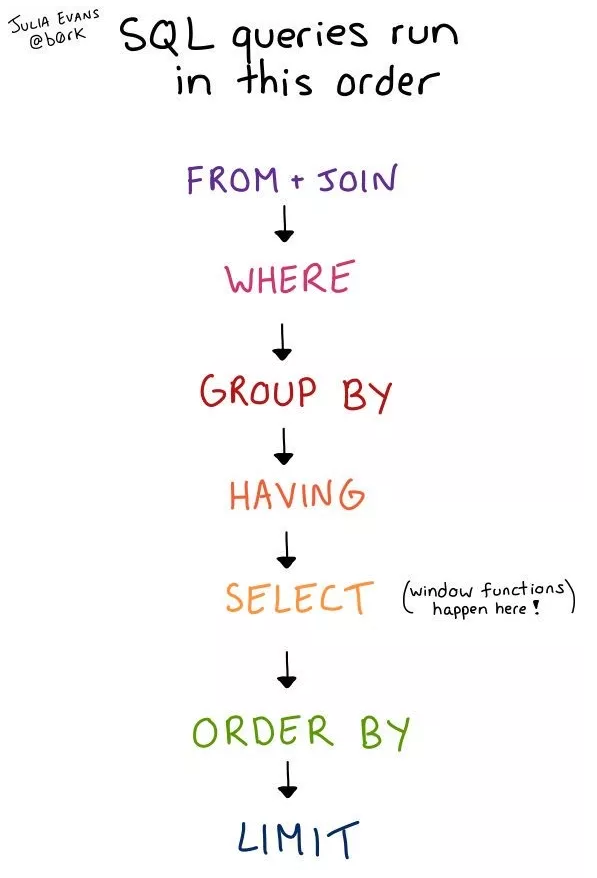 JULIA EVANS
@b0rk
SQL queries run
in this order
FROM + JOIN
WHERE
GROUP BY
HAVING
SELECT (window functions
happen here!)
ORDER BY
LIMIT